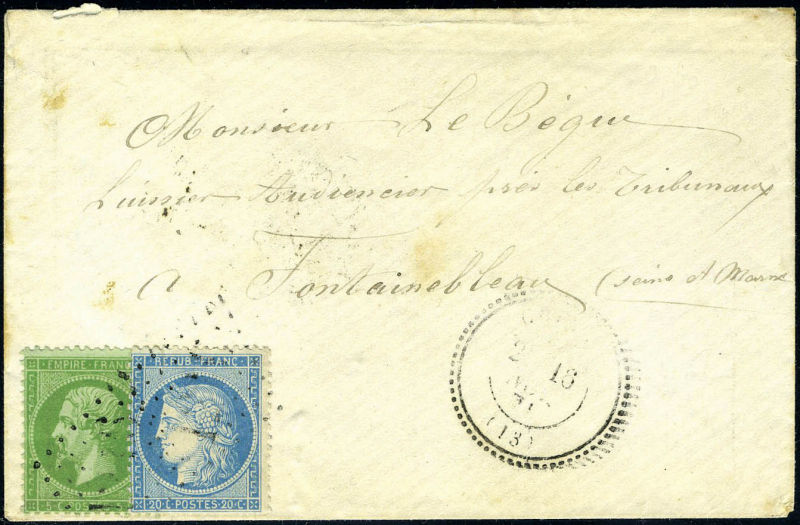 Monsieur Le Bègue
huissier Audiencier près les Tribunaux
à Fontainebleau (Seine et Marne
2 16
(13)
EMPIRE FRANC
5 C POS
REPUB FRANC
20 C POSTES 20 C